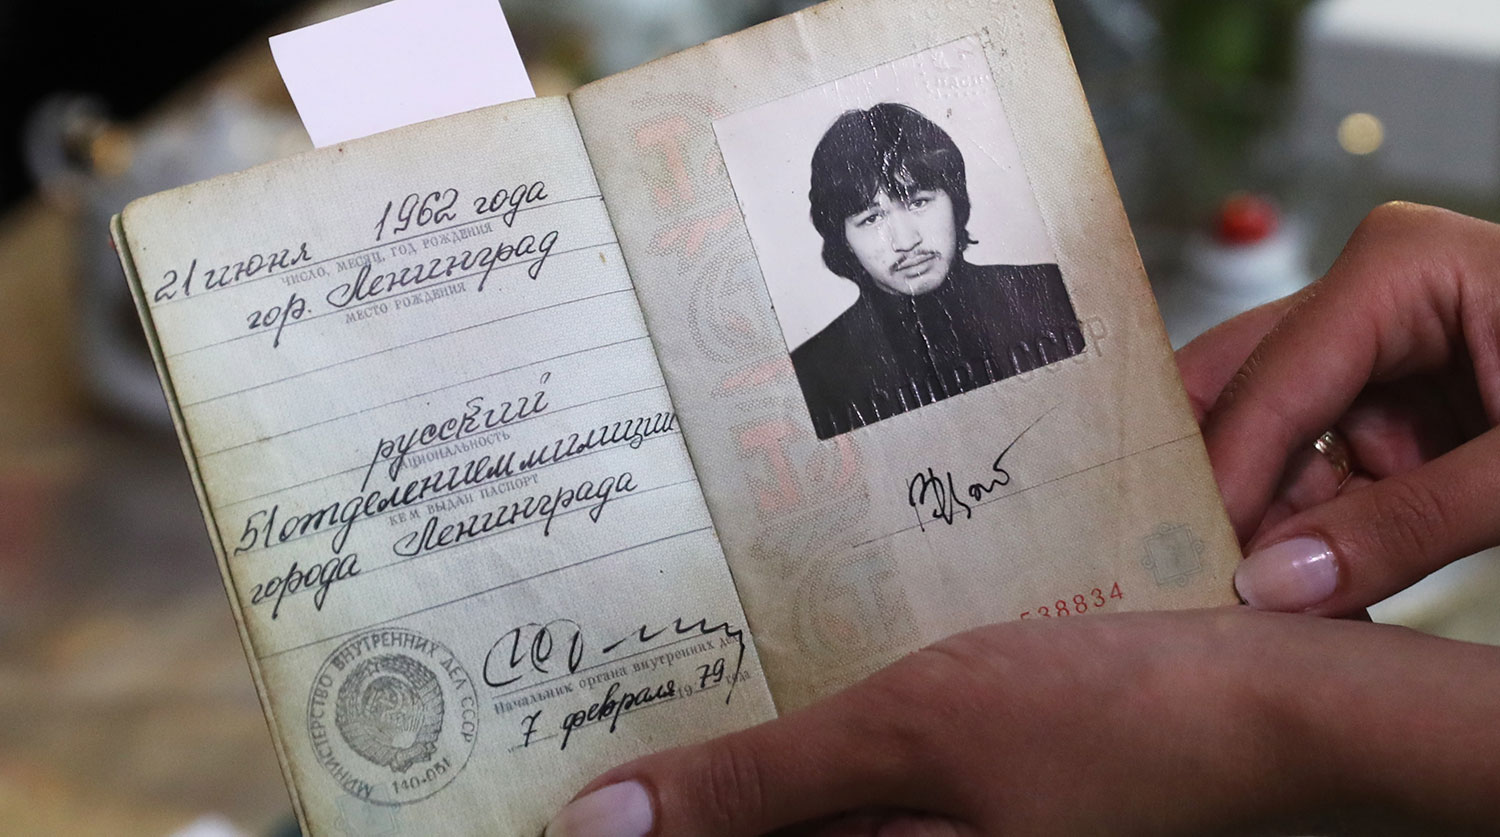 21 июня 1962 года
ЧИСЛО, МЕСЯЦ, ГОД РОЖДЕНИЯ
гор. Ленинград
МЕСТО РОЖДЕНИЯ
русский
НАЦИОНАЛЬНОСТЬ
51 отделением милиции
КЕМ ВЫДАН ПАСПОРТ
города Ленинграда
Начальник органа внутренних дел
7 февраля 1979 года
МИНИСТЕРСТВО ВНУТРЕННИХ ДЕЛ СССР
140-051
ПАСПОРТ СССР
В Цой
538834